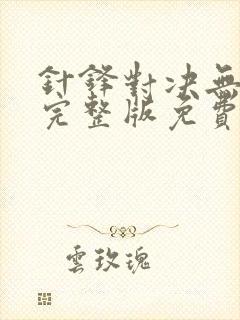 針鋒對決無
完整版免費
雲玫瑰